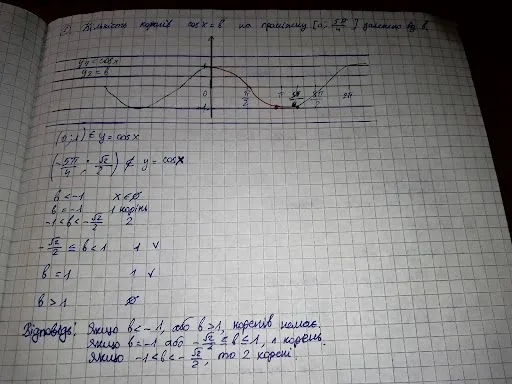 Кількість коренів cos x = b на проміжку [0; 5π/4] залежно від b.
y₁ = cos x
y₂ = b
1
0 π/2 π 5π/4 3π/2 2π
-1
(0; 1) ∈ y = cos x
(-5π/4; √2/2) ∉ y = cos x
b < -1 x ∈ ∅
b = -1 1 корінь
-1 < b < -√2/2 2
-√2/2 ≤ b < 1 1 ✓
b = 1 1 ✓
b > 1 ∅
Відповідь: Якщо b < -1, або b > 1, коренів немає.
Якщо b = -1 або -√2/2 ≤ b ≤ 1, 1 корень.
Якщо -1 < b < -√2/2, то 2 корені.